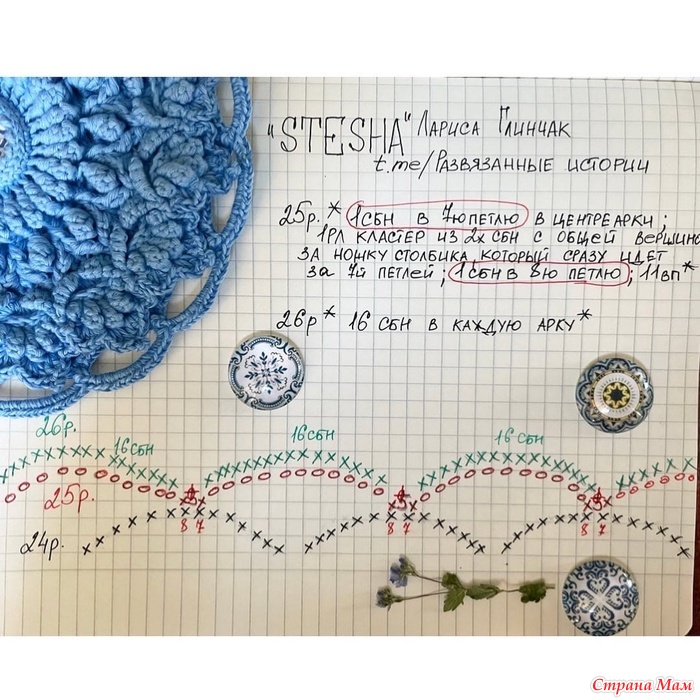 "STESHA" ЛАРИСА ГЛИНЧАК
t.me/РАЗВЯЗАННЫЕ ИСТОРИИ
25р. * 1СБН В 7Ю ПЕТЛЮ В ЦЕНТРЕ АРКИ;
1РЛ КЛАСТЕР ИЗ 2Х СБН С ОБЩЕЙ ВЕРШИНО
ЗА НОЖКУ СТОЛБИКА, КОТОРЫЙ СРАЗУ ИДЕТ
ЗА 7Й ПЕТЛЕЙ; 1СБН В 8Ю ПЕТЛЮ; 11ВП*
26р* 16 СБН В КАЖДУЮ АРКУ*
26р.
16СБН
16СБН
16 СБН
25р.
24р.
8 7
8 7
8 7
Страна Мам